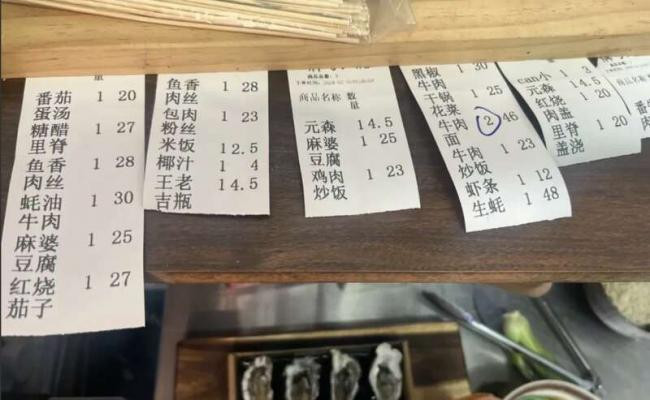 量
番茄 1 20
蛋汤
糖醋 1 27
里脊
鱼香 1 28
肉丝
蚝油 1 30
牛肉
麻婆 1 25
豆腐
红烧 1 27
茄子
鱼香 1 28
肉丝
包肉 1 23
粉丝
米饭 1 2.5
椰汁 1 4
王老 1 4.5
吉瓶
商品名称 数
量
元森 1 4.5
麻婆 1 25
豆腐
鸡肉 1 23
炒饭
黑椒 1 30
牛肉
干锅 1 25
花菜
牛肉 2 46
面
牛肉 1 23
炒饭
虾条 1 12
生蚝 1 48
can小 1 3
元森 1 4.5
红烧 1 20
肉盖
里脊 1 20
盖浇
1 20